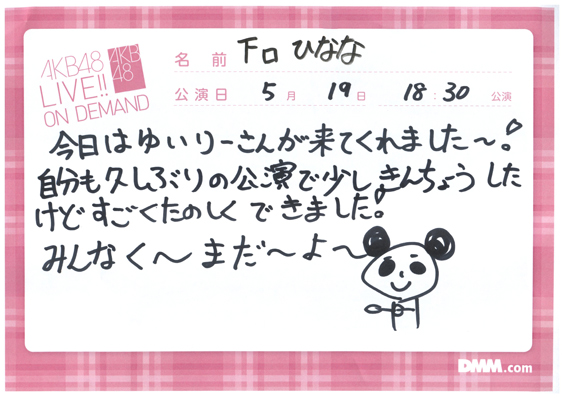 AKB48
LIVE!!
ON DEMAND
AKB
48
名前 下口ひなな
公演日 5月 19日 18:30 公演
今日はゆいりーさんが来てくれました〜!
自分も久しぶりの公演で少しきんちょうした
けどすごくたのしくできました!
みんなく〜まだ〜よ〜
DMM.com